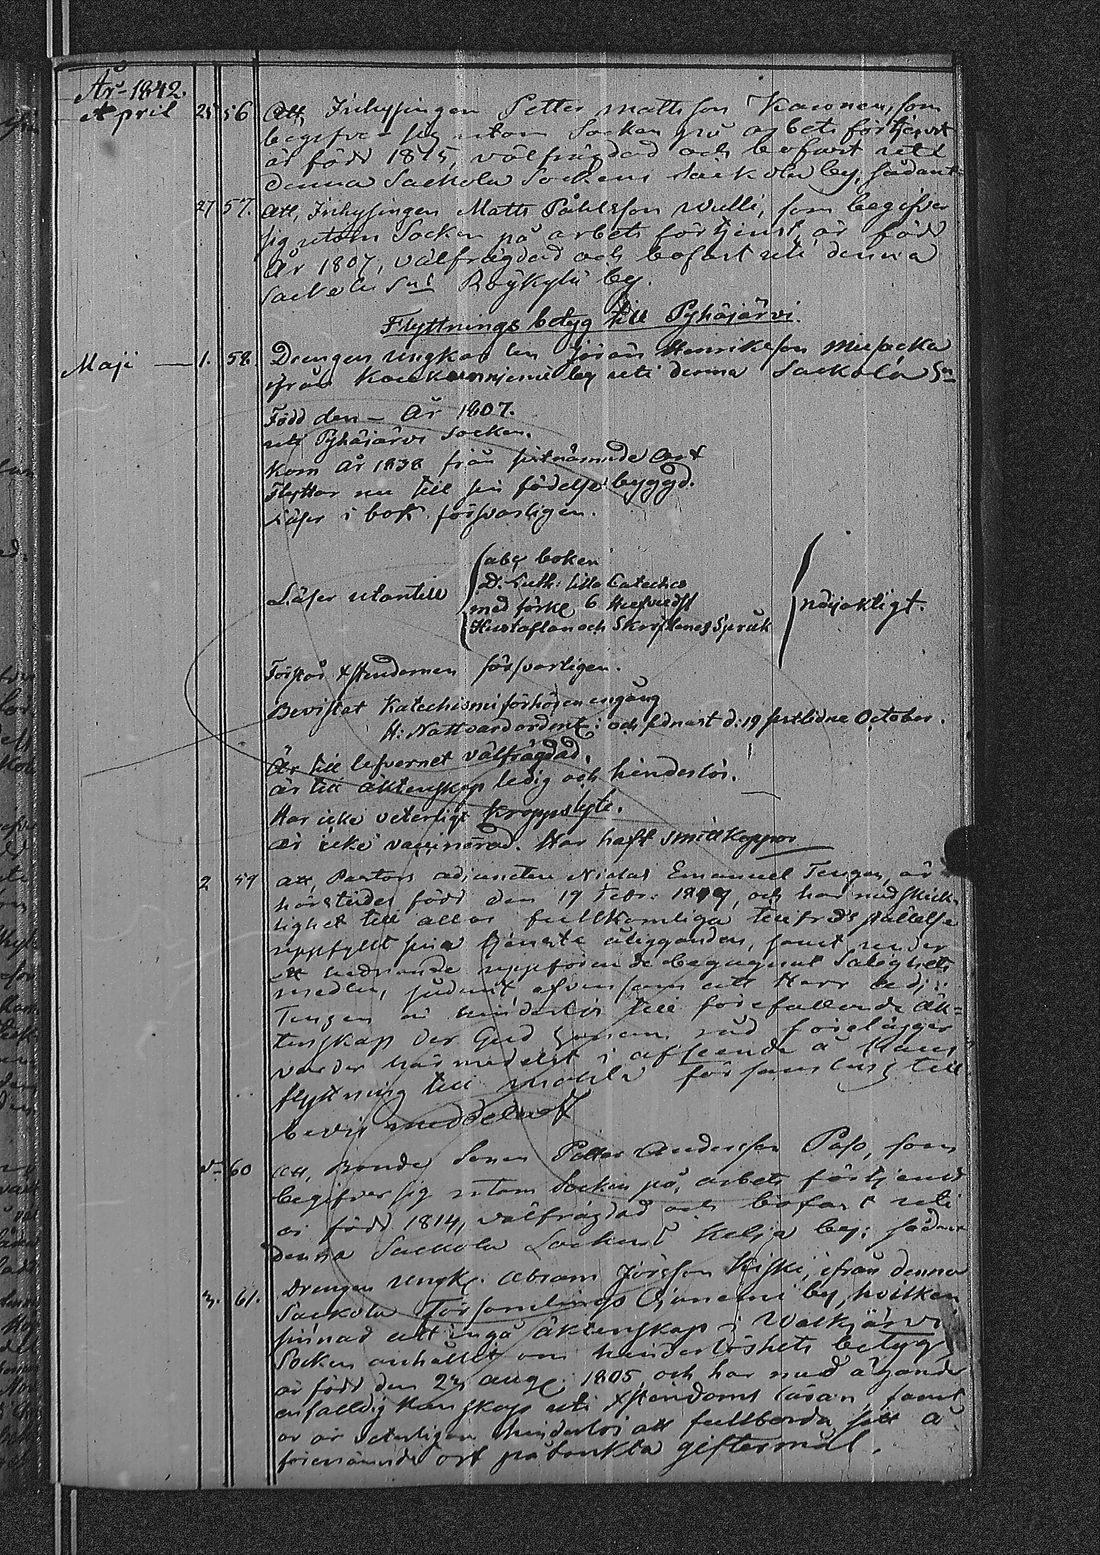 År 1842.
April 25 56 Att, Inhysingen Petter Mattsson Kaconen, som
begifver sig utom Socken på arbets förtjenst
är född 1815, välfrägdad och bofast uti
denna Sackola Sockens Sackola by, sådant
27 57. Att, Inhysingen Matts Påhlsson Wulli, som begifver
sig utom Socken på arbets förtjenst, är född
År 1807, välfrägdad och bofast uti denna
Sackola Sns Röykylä by.
Flyttnings betyg till Pyhäjärvi.
Maji — 1. 58. Drengen ungkarlen Jöran Henriksson
ifrån by uti denna Sackola Sn
Född den — År 1807.
uti Pyhäjärvi Socken.
Kom År 1838 från sistnämnde Ort
Flyttar nu till sin födelse byggd.
Läser i bok försvarligen.
Läser utantill
abc boken
D. Luth. lilla Cateches
med förkl. 6 Hufvudst
Hustaflan och Skriftenes Språk
nöjaktigt.
Förstår Xstendomen försvarligen.
Bevistat Katechismi förhören engång
H. Nattvard ordentl. och sednast d. 19 sistlidne October.
Är till lefvernet välfrägdad.
är till äktenskap ledig och hinderlös.
Har icke veterligt kroppslyte.
är icke vaccinerad. Har haft smittkoppor
2 59 Att, Pastors adjuncten Niclas Emanuel Tengen, är
härstädes född den 19 Febr. 1819, och har med skick-
lighet till allas fullkomliga tillfredsställelse
uppfyllt sina tjenste åligganden, samt under
ett hedrande uppförende begagnat Salighets
medlen, jemväl äfvensom att Herr Adj:
Tengen är hinderlös till förefallande äk-
tenskap der Gud honom råd förelägger
varder härmedelst i afseende å Hans
flyttning till Mohla församling till
bevis meddelat
d:o 60 Att, Bonde Sonen Petter Andersson Paso, som
begifver sig utom Socken på arbets förtjenst
är född 1814, välfrägdad och bofast uti
denna Sackola Sockens Kelja by: sådant
3. 61. Drengen ungk. Abram Jöransson Kiski, ifrån denna
Sackola Församlings by, hvilken
sinnad att ingå äktenskap i Walkjärvi
Socken anhållit om hinderlöshets betyg
är född den 24 Aug. 1805 och har med ägande
enfaldig kunskap uti Xstendoms läran samt
är veterligen hinderlös att fullborda sitt å
förenämnde ort påtänkta giftermål.